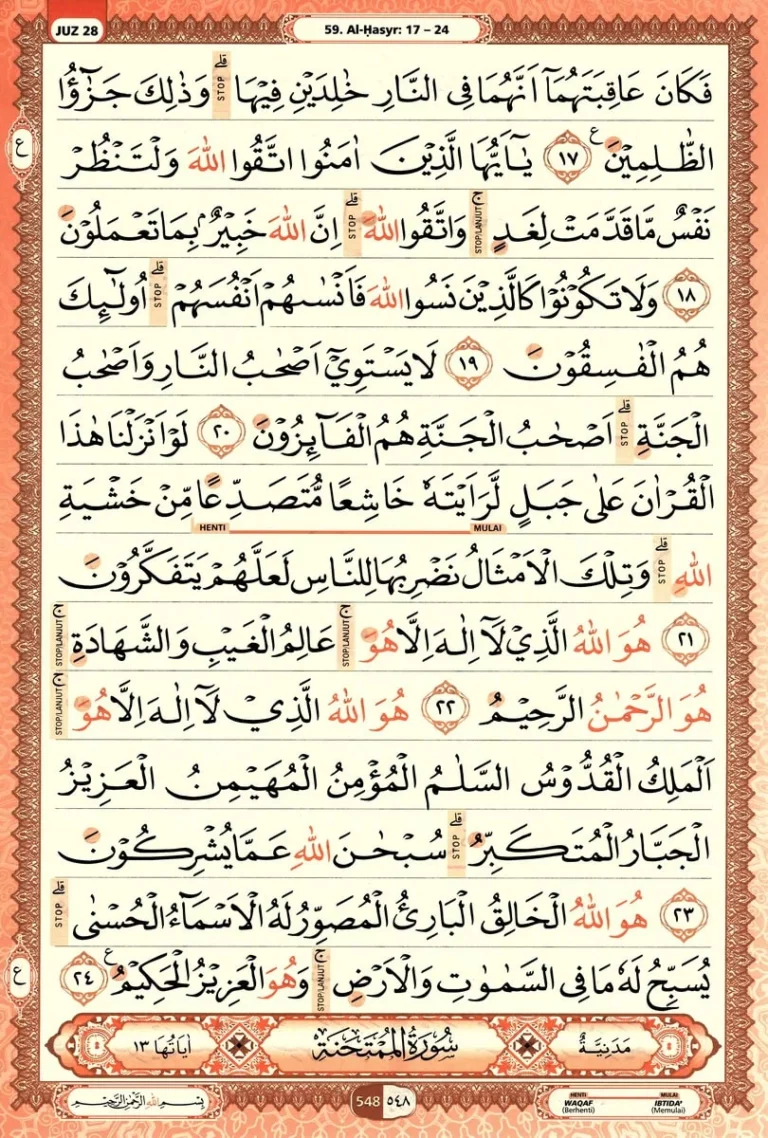 JUZ 28
59. Al-Ḥasyr: 17 – 24
فَكَانَ عَاقِبَتَهُمَآ اَنَّهُمَا فِى النَّارِ خٰلِدَيْنِ فِيْهَاۗ وَذٰلِكَ جَزٰۤؤُا
الظّٰلِمِيْنَ ࣖ ١٧ يٰٓاَيُّهَا الَّذِيْنَ اٰمَنُوا اتَّقُوا اللّٰهَ وَلْتَنْظُرْ
نَفْسٌ مَّا قَدَّمَتْ لِغَدٍۚ وَاتَّقُوا اللّٰهَ ۗاِنَّ اللّٰهَ خَبِيْرٌ ۢبِمَا تَعْمَلُوْنَ
١٨ وَلَا تَكُوْنُوْا كَالَّذِيْنَ نَسُوا اللّٰهَ فَاَنْسٰىهُمْ اَنْفُسَهُمْۗ اُولٰۤىِٕكَ
هُمُ الْفٰسِقُوْنَ ١٩ لَا يَسْتَوِيْٓ اَصْحٰبُ النَّارِ وَاَصْحٰبُ
الْجَنَّةِۗ اَصْحٰبُ الْجَنَّةِ هُمُ الْفَاۤىِٕزُوْنَ ٢٠ لَوْ اَنْزَلْنَا هٰذَا
الْقُرْاٰنَ عَلٰى جَبَلٍ لَّرَاَيْتَهٗ خَاشِعًا مُّتَصَدِّعًا مِّنْ خَشْيَةِ
HENTI MULAI
اللّٰهِ ۗوَتِلْكَ الْاَمْثَالُ نَضْرِبُهَا لِلنَّاسِ لَعَلَّهُمْ يَتَفَكَّرُوْنَ
٢١ هُوَ اللّٰهُ الَّذِيْ لَآ اِلٰهَ اِلَّا هُوَۚ عَالِمُ الْغَيْبِ وَالشَّهَادَةِۚ
هُوَ الرَّحْمٰنُ الرَّحِيْمُ ٢٢ هُوَ اللّٰهُ الَّذِيْ لَآ اِلٰهَ اِلَّا هُوَۚ
اَلْمَلِكُ الْقُدُّوْسُ السَّلٰمُ الْمُؤْمِنُ الْمُهَيْمِنُ الْعَزِيْزُ
الْجَبَّارُ الْمُتَكَبِّرُۗ سُبْحٰنَ اللّٰهِ عَمَّا يُشْرِكُوْنَ
٢٣ هُوَ اللّٰهُ الْخَالِقُ الْبَارِئُ الْمُصَوِّرُ لَهُ الْاَسْمَاۤءُ الْحُسْنٰىۗ
يُسَبِّحُ لَهٗ مَا فِى السَّمٰوٰتِ وَالْاَرْضِۚ وَهُوَ الْعَزِيْزُ الْحَكِيْمُ ࣖ ٢٤
مَدَنِيَّةٌ سُوْرَةُ الْمُمْتَحَنَةِ اٰيَاتُهَا ١٣
بِسْمِ اللّٰهِ الرَّحْمٰنِ الرَّحِيْمِ
548 ٥٤٨
HENTI WAQAF (Berhenti)
MULAI IBTIDA' (Memulai)